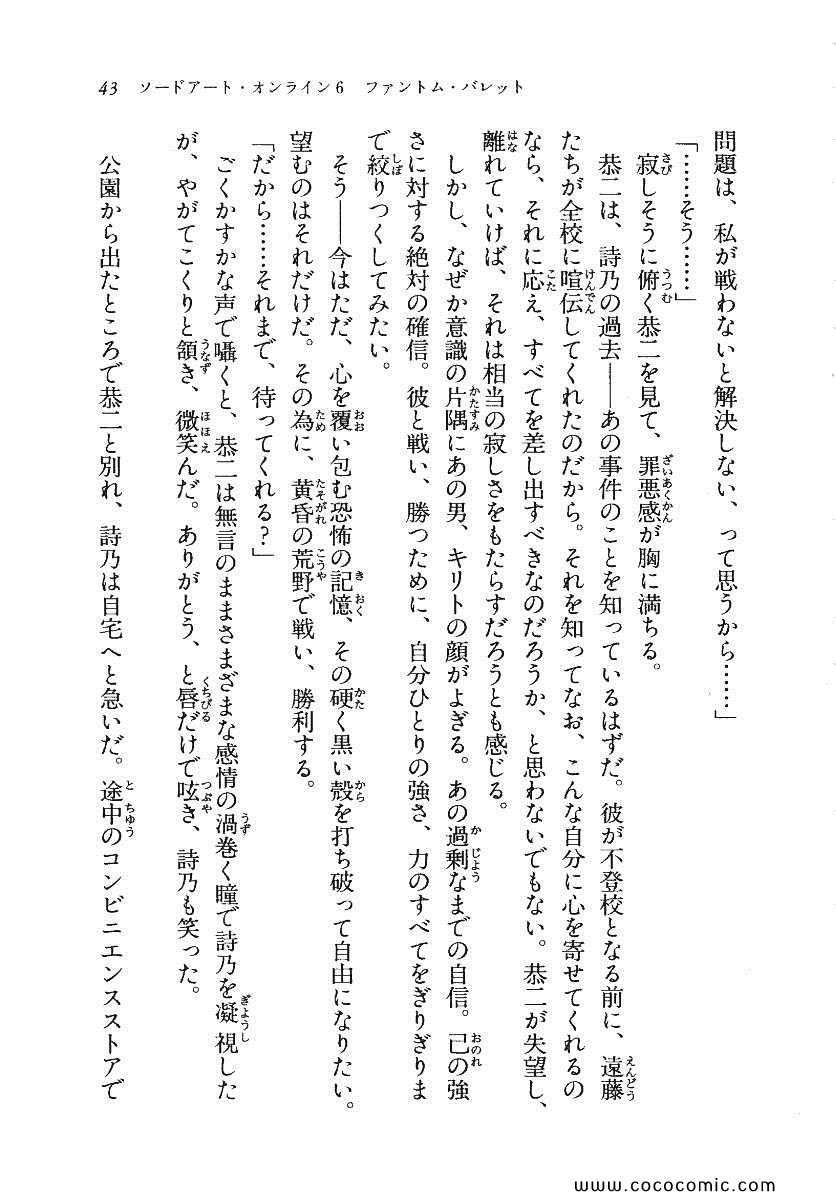 43 ソードアート・オンライン6 ファントム・バレット
問題は、私が戦わないと解決しない、って思うから……」
「……そう……」
寂しそうに俯く恭二を見て、罪悪感が胸に満ちる。
恭二は、詩乃の過去――あの事件のことを知っているはずだ。彼が不登校となる前に、遠藤
たちが全校に喧伝してくれたのだから。それを知ってなお、こんな自分に心を寄せてくれるの
なら、それに応え、すべてを差し出すべきなのだろうか、と思わないでもない。恭二が失望し、
離れていけば、それは相当の寂しさをもたらすだろうとも感じる。
しかし、なぜか意識の片隅にあの男、キリトの顔がよぎる。あの過剰なまでの自信。己の強
さに対する絶対の確信。彼と戦い、勝つために、自分ひとりの強さ、力のすべてをぎりぎりま
で絞りつくしてみたい。
そう――今はただ、心を覆い包む恐怖の記憶、その硬く黒い殻を打ち破って自由になりたい。
望むのはそれだけだ。その為に、黄昏の荒野で戦い、勝利する。
「だから……それまで、待ってくれる?」
ごくかすかな声で囁くと、恭二は無言のままさまざまな感情の渦巻く瞳で詩乃を凝視した
が、やがてこくりと頷き、微笑んだ。ありがとう、と唇だけで呟き、詩乃も笑った。
公園から出たところで恭二と別れ、詩乃は自宅へと急いだ。途中のコンビニエンスストアで
www.cococomic.com